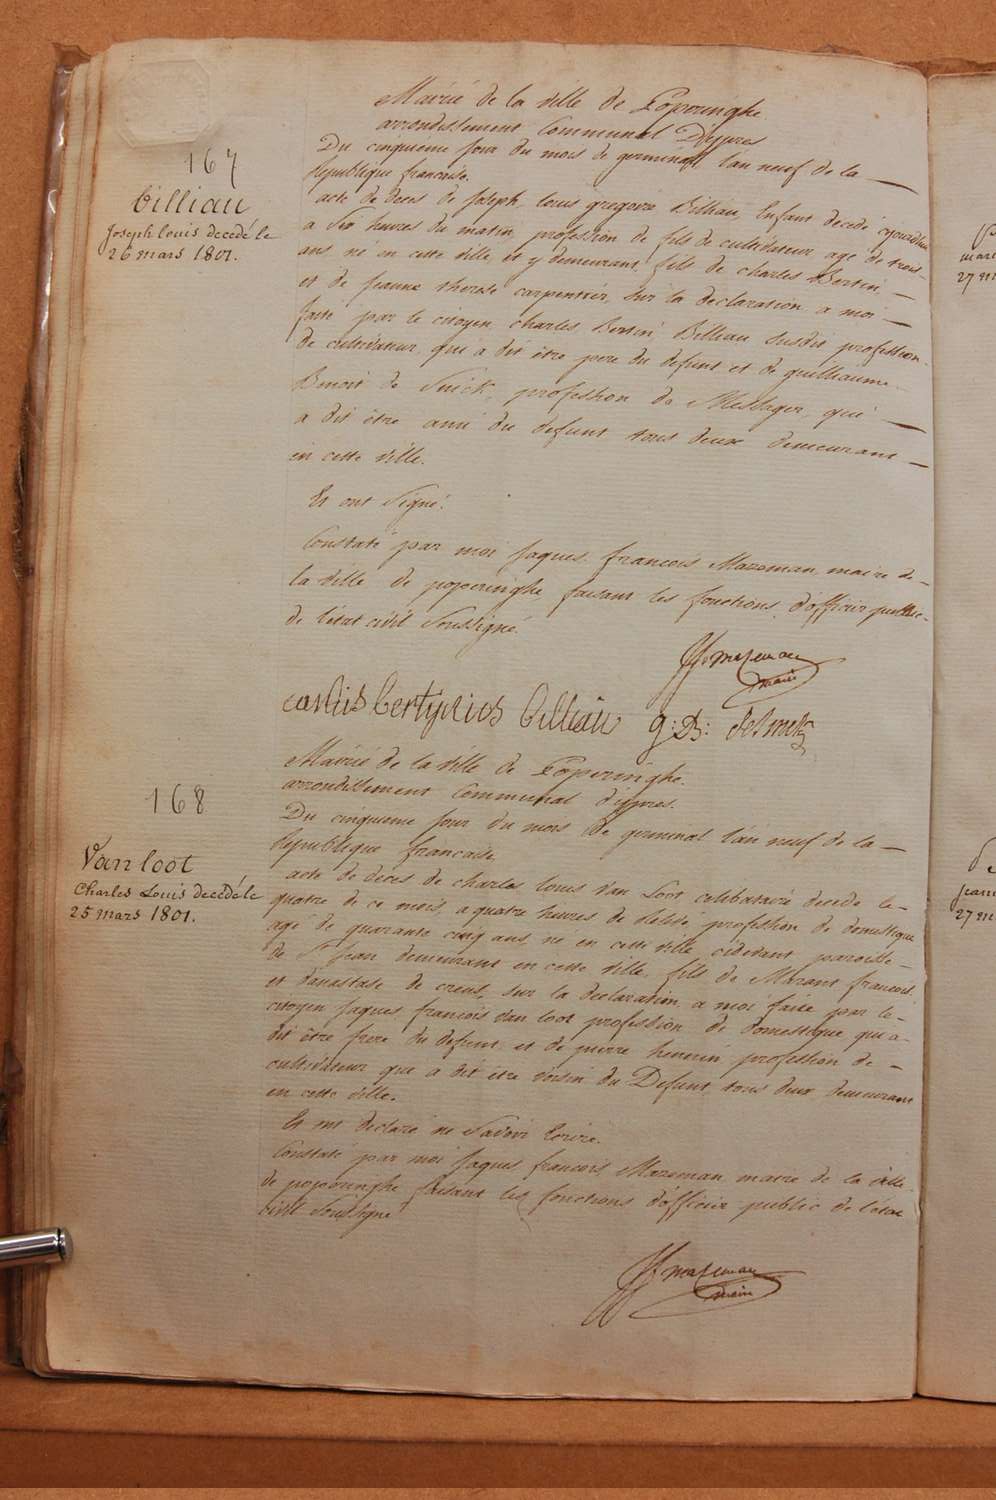 Mairie de la ville de Poperinghe
arrondissement Communal D'ypres
167
Du cinquieme jour du mois de germinal l'an neuf de la
Republique francoise.
billiau
Joseph Louis decedé le
26 mars 1801.
acte de deces de Joseph louis gregoire Billiau, Enfant decedé
a six heures du matin, profession de fils de cultivateur agé de trois
ans, né en cette ville, et y demeurant, fils de charles Bertin
et de jeanne therese carpentier, sur la declaration a moi
faite par le citoyen charles Bertin Billiau susdit profession
de cultivateur, qui a dit être pere du defunt et de guilliaume
Benoit de Smick, profession de Messager, qui
a dit être ami du defunt tous deux demeurant
en cette ville.
Et ont signé.
Constaté par moi Jaques francois Mazeman, maire de
la ville de poperinghe, faisant les fonctions d'officier public
de l'état civil soussigné.
JJF mazeman
maire
carolus bertynios billiau g: B: Desmek
168
Mairie de la ville de Poperinghe.
arrondissement Communal d'ypres.
Du cinquieme jour du mois de germinal l'an neuf de la
Republique francaise
Van loot
Charles Louis decedé le
25 mars 1801.
acte de déces de charles louis van Loot celibataire decedé le
quatre de ce mois, a quatre heures de relevé profession de domestique
agé de quarante cinq ans, né en cette ville cidevant paroisse
de St Jean demeurant en cette ville, fils de Mazant francois
et d'anastase de creus, sur la declaration a moi faite par le
citoyen Jaques francois van loot profession de domestique qui a
dit être frere du defunt et de pierre henerin profession de
cultivateur que a dit être voisin du Defunt tous deux demeurant
en cette ville.
Et ont declaré ne savoir Ecrire.
Constaté par moi Jaques francois Mazeman maire de la ville
de poperinghe faisant les fonctions d'officier public de l'état
civil soussigné
JJF mazeman
maire
27
27